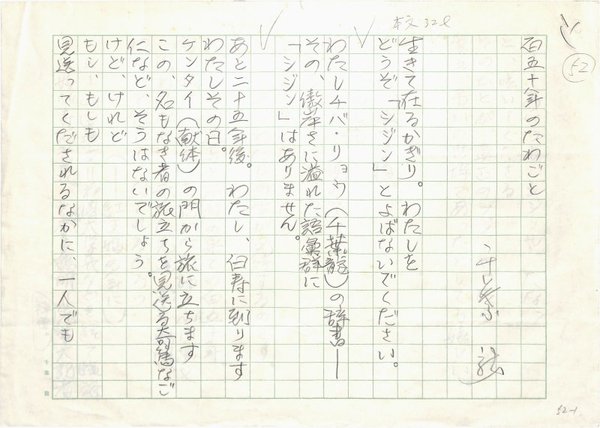 本文32ℓ
52
百五十年のたわごと
千葉 龍
生きて在るかぎり。わたしを
どうぞ「シジン」とよばないでください。
わたしチバ・リョウ(千葉龍)の辞書――
その、傲岸さに溢れた語彙群に
「シジン」はありません。
あと二十五年後。わたし、白寿に到ります
わたしその日。
ケンタイ(献体)の門から旅に立ちます
この、名もなき者の旅立ちを見送る奇篤なご
仁など、そうはないでしょう。
けど、けれど
もし、もしも
見送ってくださるなかに、一人でも
52-1